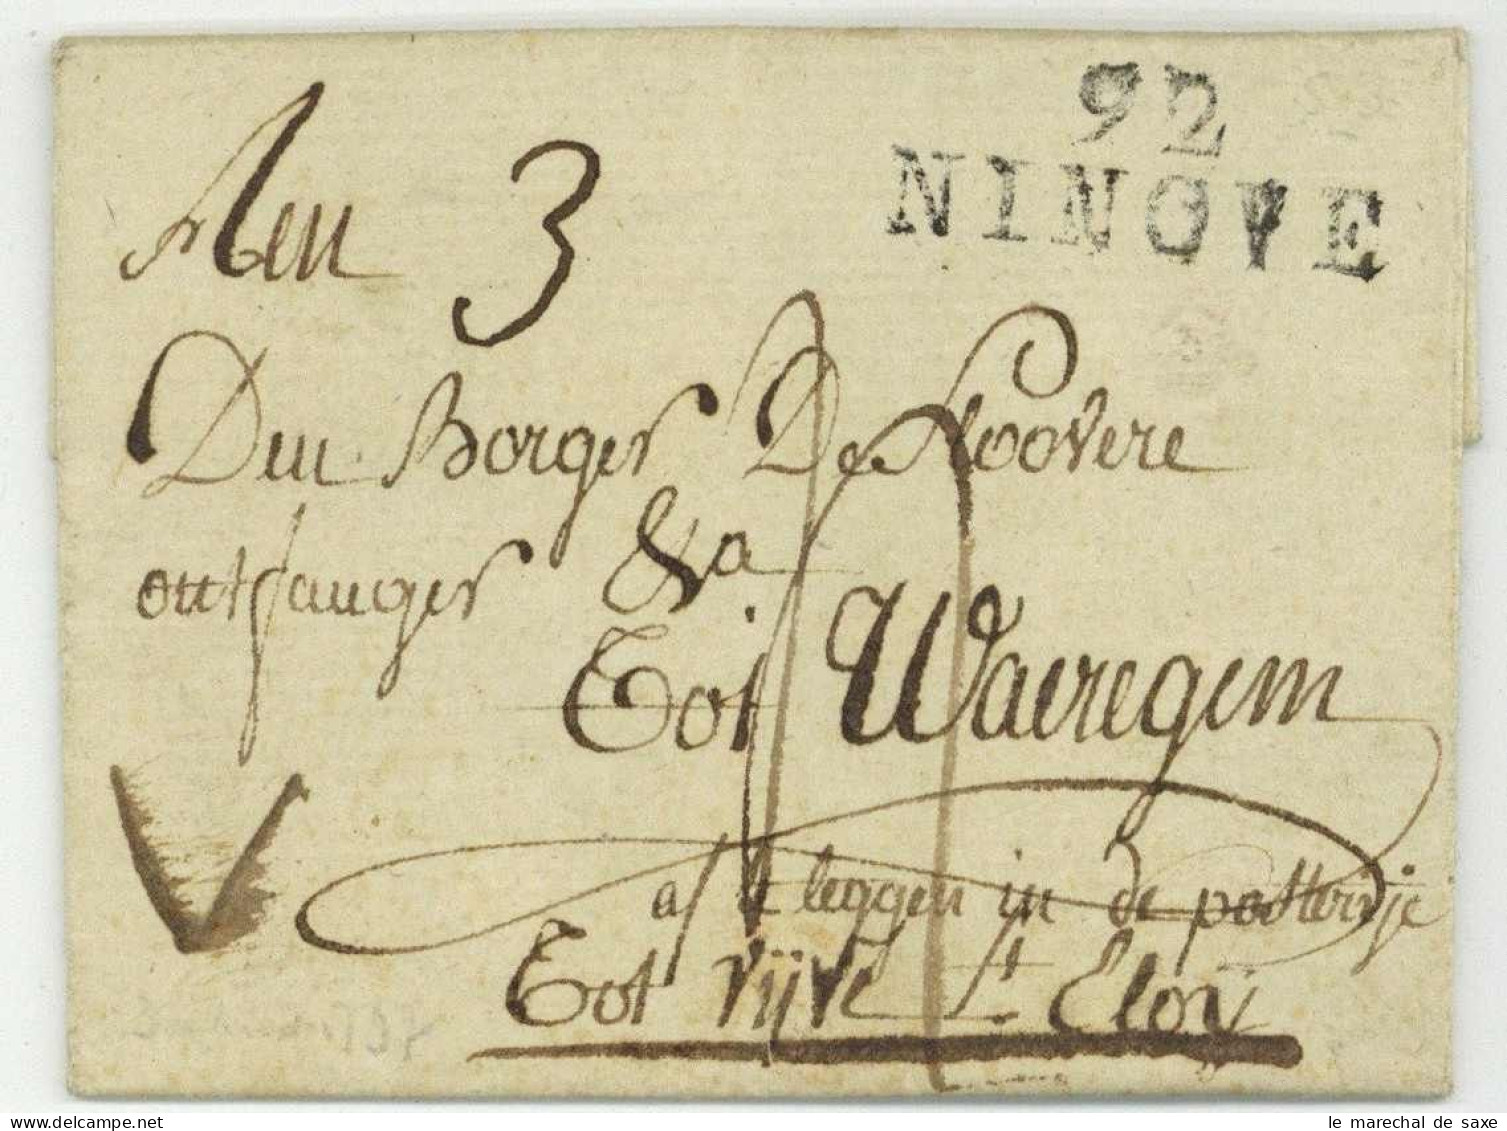 92
NINOVE
Aen 3
Den Borger De Noovere
ontfanger &a
Tot Waeregem
af te leggen in de posterije
Tot Vijve St Eloy
le marechal de saxe